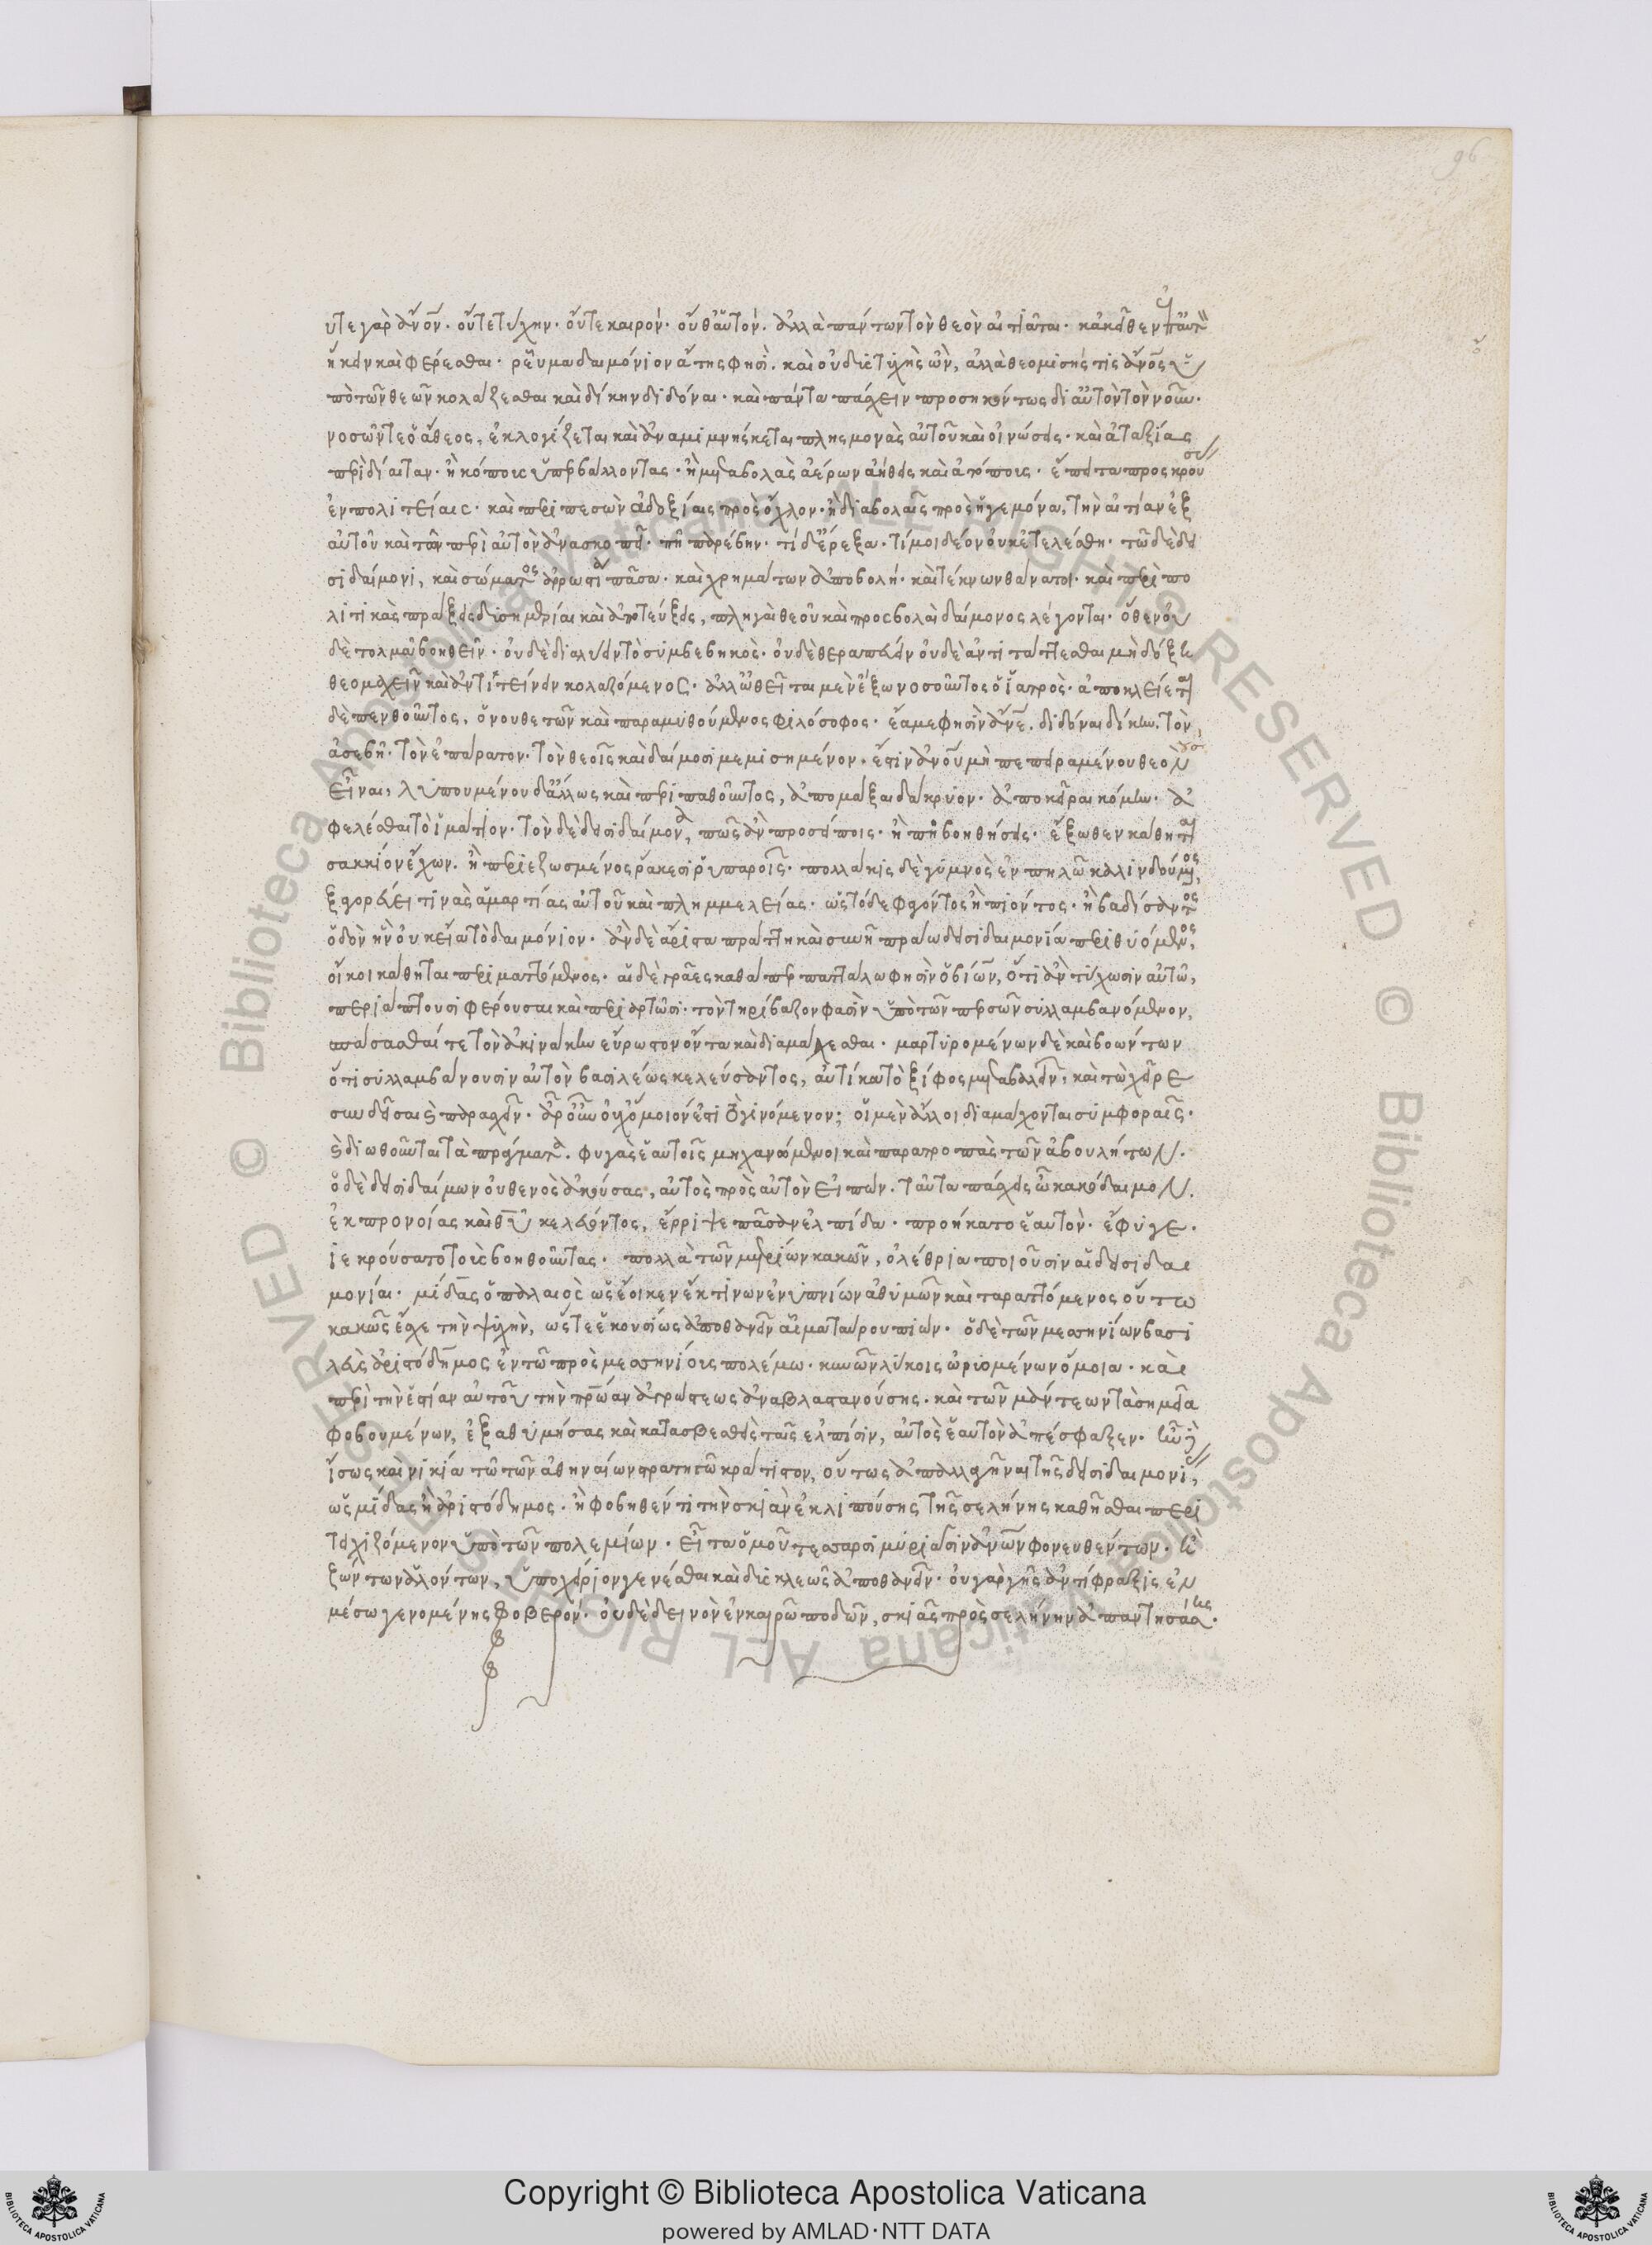 96
υτε γὰρ ἄνον· οὔτε τύχην· οὔτε καιρόν· οὔθ' αὑτόν· ἀλλὰ πάντων τὸν θεὸν αἰτιᾶται· κἀκεῖθεν ἐπ' αὐτὸν
ἥκειν καὶ φέρεσθαι· ῥεῦμα δαιμόνιον ἄτης φησί· καὶ οὐ δυστυχὴς ὢν, ἀλλὰ θεομισής τις ἄνος ὑ
πὸ τῶν θεῶν κολάζεσθαι καὶ δίκην διδόναι· καὶ πάντα πάσχειν προσηκόντως δι' αὑτὸν τὸν νοῦν·
νοσῶν τε ὁ ἄθεος, ἐκλογίζεται καὶ ἀναμιμνήσκεται πλησμονὰς αὑτοῦ καὶ οἰνώσεις· καὶ ἀταξίας
περὶ δίαιταν· ἢ κόπους ὑπερβάλλοντας· ἢ μεταβολὰς ἀέρων ἀήθεις καὶ ἀτόπους· ἔπειτα προσκρούσας
ἐν πολιτείαις· καὶ περιπεσὼν ἀδοξίαις πρὸς ὄχλον· ἢ διαβολαῖς πρὸς ἡγεμόνα, τὴν αἰτίαν ἐξ
αὑτοῦ καὶ τῶν περὶ αὑτὸν ἀνασκοπεῖ· πῆ παρέβην· τί δ' ἔρεξα· τί μοι δέον οὐκ ἐτελέσθη· τῷ δὲ δει
σιδαίμονι, καὶ σώματος ἀρρωστία πᾶσα· καὶ χρημάτων ἀποβολή· καὶ τέκνων θάνατοι· καὶ περὶ πο
λιτικὰς πράξεις δυσημερίαι καὶ ἀποτεύξεις, πληγαὶ θεοῦ καὶ προσβολαὶ δαίμονος λέγονται· ὅθεν οὐ
δὲ τολμᾷ βοηθεῖν· οὐδὲ διαλύειν τὸ συμβεβηκός· οὐδὲ θεραπεύειν οὐδὲ ἀντιτάττεσθαι μὴ δόξῃ
θεομαχεῖν καὶ ἀντιτείνειν κολαζόμενος· ἀλλ' ὠθεῖται μὲν ἔξω νοσοῦντος ὁ ἰατρός· ἀποκλείεται
δὲ πενθοῦντος, ὁ νουθετῶν καὶ παραμυθούμενος φιλόσοφος· ἔα με φησὶν ἄνε, διδόναι δίκην, τὸν
ἀσεβῆ· τὸν ἐπάρατον· τὸν θεοῖς καὶ δαίμοσι μεμισημένον· ἔστιν ἀνοῦ μὴ πεπεισμένου θεοὺς
εἶναι, λυπουμένου δ' ἄλλως καὶ περιπαθοῦντος, ἀπομάξαι δάκρυον· ἀποκεῖραι κόμην· ἀ
φελέσθαι τὸ ἱμάτιον· τὸν δὲ δεισιδαίμονα, πῶς ἂν προσείποις· ἢ πῆ βοηθήσεις· ἔξωθεν κάθηται
σακκίον ἔχων· ἢ περιεζωσμένος ῥάκεσι ῥυπαροῖς· πολλάκις δὲ γυμνὸς ἐν πηλῷ καλινδούμενος,
ἐξαγορεύει τινὰς ἁμαρτίας αὑτοῦ καὶ πλημμελείας· ὡς τόδε φαγόντος ἢ πιόντος· ἢ βαδίσαντος
ὁδὸν ἣν οὐκ εἴα τὸ δαιμόνιον· ἂν δὲ ἄριστα πράττῃ καὶ συνῇ πράῳ δεισιδαιμονία περιθυόμενος,
οἴκοι κάθηται περιματτόμενος· αἱ δὲ γρᾶες καθάπερ παττάλῳ φησὶν ὁ βίων, ὅτι ἂν τύχωσιν αὐτῷ,
περιάπτουσι φέρουσαι καὶ περιαρτῶσι· τὸν τηρίβαζον φασὶν ὑπὸ τῶν περσῶν συλλαμβανόμενον,
σπάσασθαί τε τὸν ἀκινάκην εὔρωστον ὄντα καὶ διαμάχεσθαι· μαρτυρομένων δὲ καὶ βοώντων
ὅτι συλλαμβάνουσιν αὐτὸν βασιλέως κελεύσαντος, αὐτίκα τὸ ξίφος μεταβαλεῖν, καὶ τὼ χεῖρε
συνδῆσαι παρασχεῖν· ἆρ' οὖν οὐχ ὅμοιόν ἐστι τὸ γινόμενον; οἱ μὲν ἄλλοι διαμάχονται συμφοραῖς·
καὶ διωθοῦνται τὰ πράγματα· φυγὰς ἑαυτοῖς μηχανώμενοι καὶ παρατροπὰς τῶν ἀβουλήτων·
ὁ δὲ δεισιδαίμων οὐθενὸς ἀκούσας, αὐτὸς πρὸς αὑτὸν εἰπών· ταῦτα πάσχεις ὦ κακόδαιμον·
ἐκ προνοίας καὶ θῦ κελεύοντος, ἔρριψε πᾶσαν ἐλπίδα· προήκατο ἑαυτόν· ἔφυγε·
διεκρούσατο τοὺς βοηθοῦντας· πολλὰ τῶν μετρίων κακῶν, ὀλέθρια ποιοῦσιν αἱ δεισιδαι
μονίαι· μίδας ὁ παλαιὸς ὡς ἔοικεν ἔκ τινων ἐνυπνίων ἀθυμῶν καὶ ταραττόμενος οὕτω
κακῶς ἔσχε τὴν ψυχὴν, ὥστε ἑκουσίως ἀποθανεῖν αἷμα ταύρου πιών· ὁ δὲ τῶν μεσηνίων βασι
λεὺς ἀριστόδημος ἐν τῷ πρὸς μεσηνίους πολέμῳ· κυνῶν λύκοις ὠρυομένων ὅμοια· καὶ
περὶ τὴν ἑστίαν αὐτοῦ τὴν πατρῴαν ἀγρώστεως ἀναβλαστανούσης· καὶ τῶν μάντεων τὰ σημεῖα
φοβουμένων, ἐξαθυμήσας καὶ κατασβεσθεὶς ταῖς ἐλπίσιν, αὐτὸς ἑαυτὸν ἀπέσφαξεν· ἦν δ'
ἴσως καὶ νικίᾳ τῷ τῶν ἀθηναίων στρατηγῷ κράτιστον, οὕτως ἀπαλλαγῆναι τῆς δεισιδαιμονίας,
ὡς μίδας ἢ ἀριστόδημος· ἢ φοβηθέντι τὴν σκιὰν ἐκλιπούσης τῆς σελήνης καθῆσθαι περι
τειχιζόμενον ὑπὸ τῶν πολεμίων· εἶτα ὁμοῦ τέσσαρσι μυριάσιν ἀνῶν φονευθέντων· κ
ζώντων ἁλόντων, ὑποχείριον γενέσθαι καὶ δυσκλεῶς ἀποθανεῖν· οὐ γὰρ γῆς ἀντίφραξις ἐν
μέσῳ γενομένης φοβερόν· οὐδὲ δεινὸν ἐν καιρῷ ποδῶν, σκιᾶς πρὸς σελήνην ἀπαντησάσης·
Copyright © Biblioteca Apostolica Vaticana
powered by AMLAD·NTT DATA